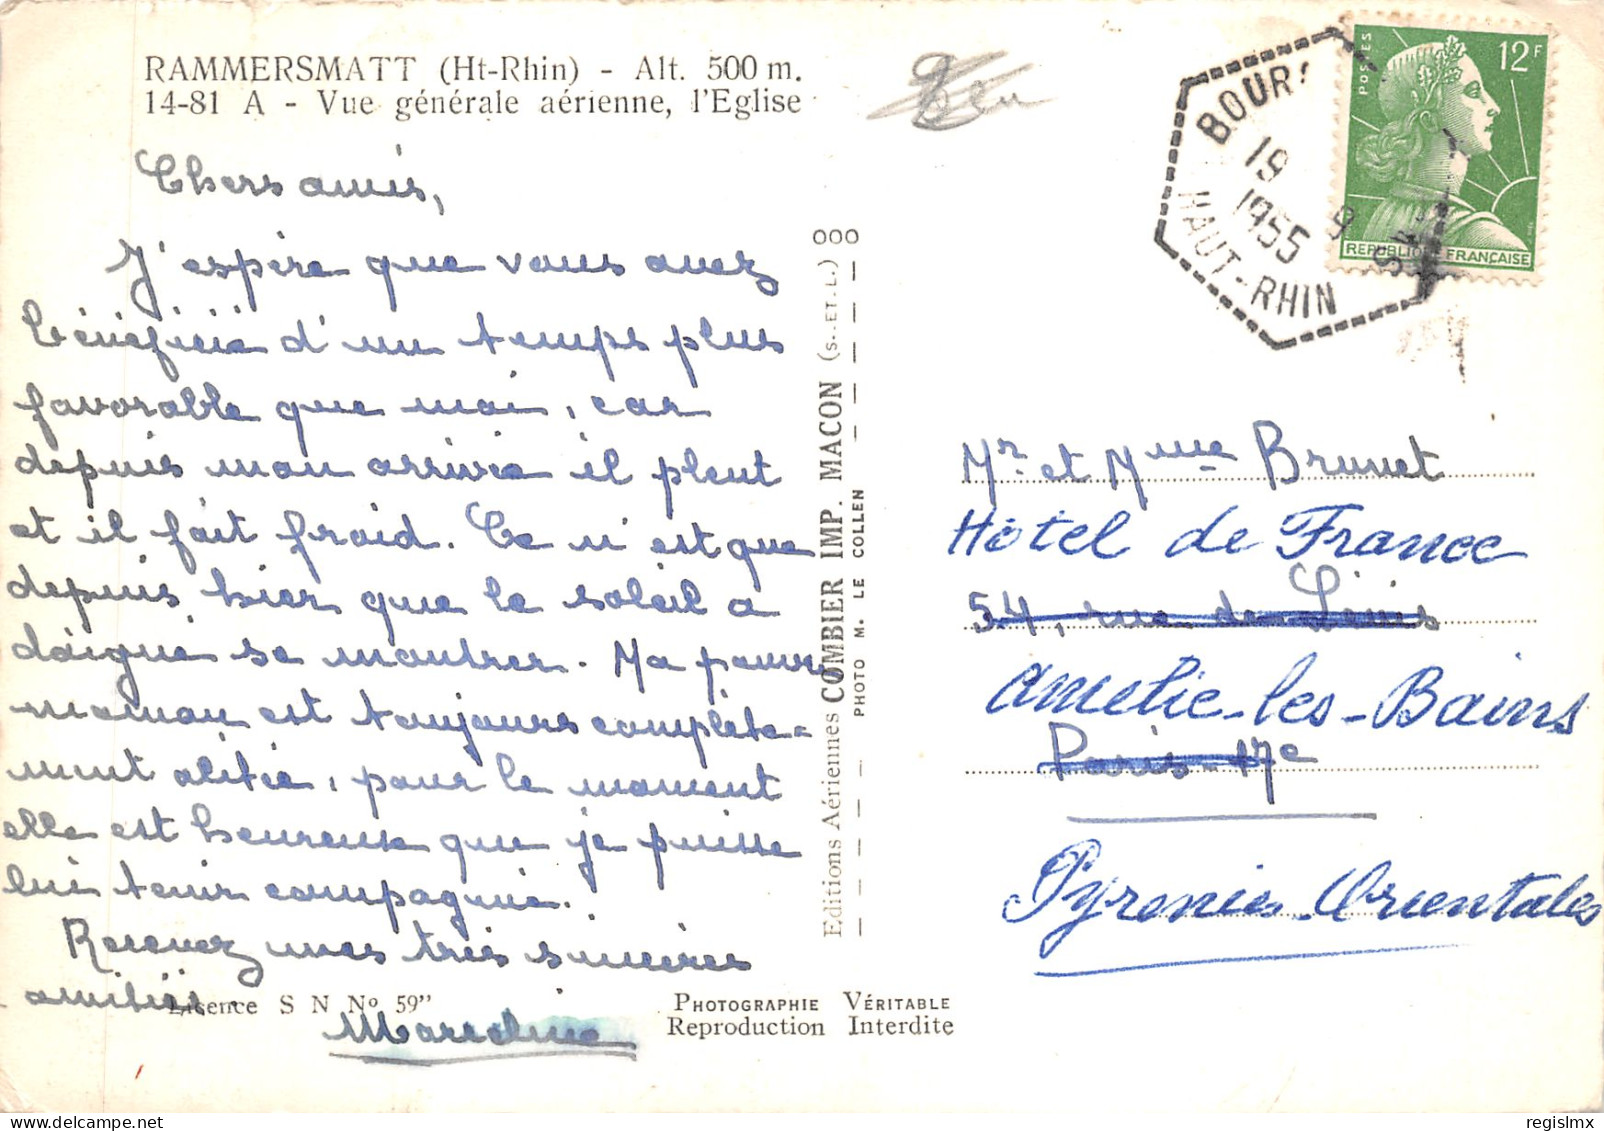 RAMMERSMATT (Ht-Rhin) - Alt. 500 m.
14-81 A - Vue générale aérienne, l'Eglise
Chers amis,
J'espère que vous avez
bénéficié d'un temps plus
favorable que moi, car
depuis mon arrivée il pleut
et il fait froid. Ce n'est que
depuis hier que le soleil a
daigné se montrer. Ma pauvre
maman est toujours complète=
ment alitée, pour le moment
elle est heureuse que je puisse
lui tenir compagnie.
Recevez mes très sincères
amitiés.
Licence S N No 59"
Marceline
000
Editions Aériennes COMBIER IMP. MACON (S.-ET-L.)
PHOTO M. LE COLLEN
PHOTOGRAPHIE VÉRITABLE
Reproduction Interdite
BOUR
19
9
1955
HAUT-RHIN
POSTES
12F
REPUBLIQUE FRANÇAISE
Mr et Mme Brunet
Hôtel de France
54, rue de
Amélie-les-Bains
Paris-17e
Pyrénées-Orientales
www.delcampe.net
regislmx